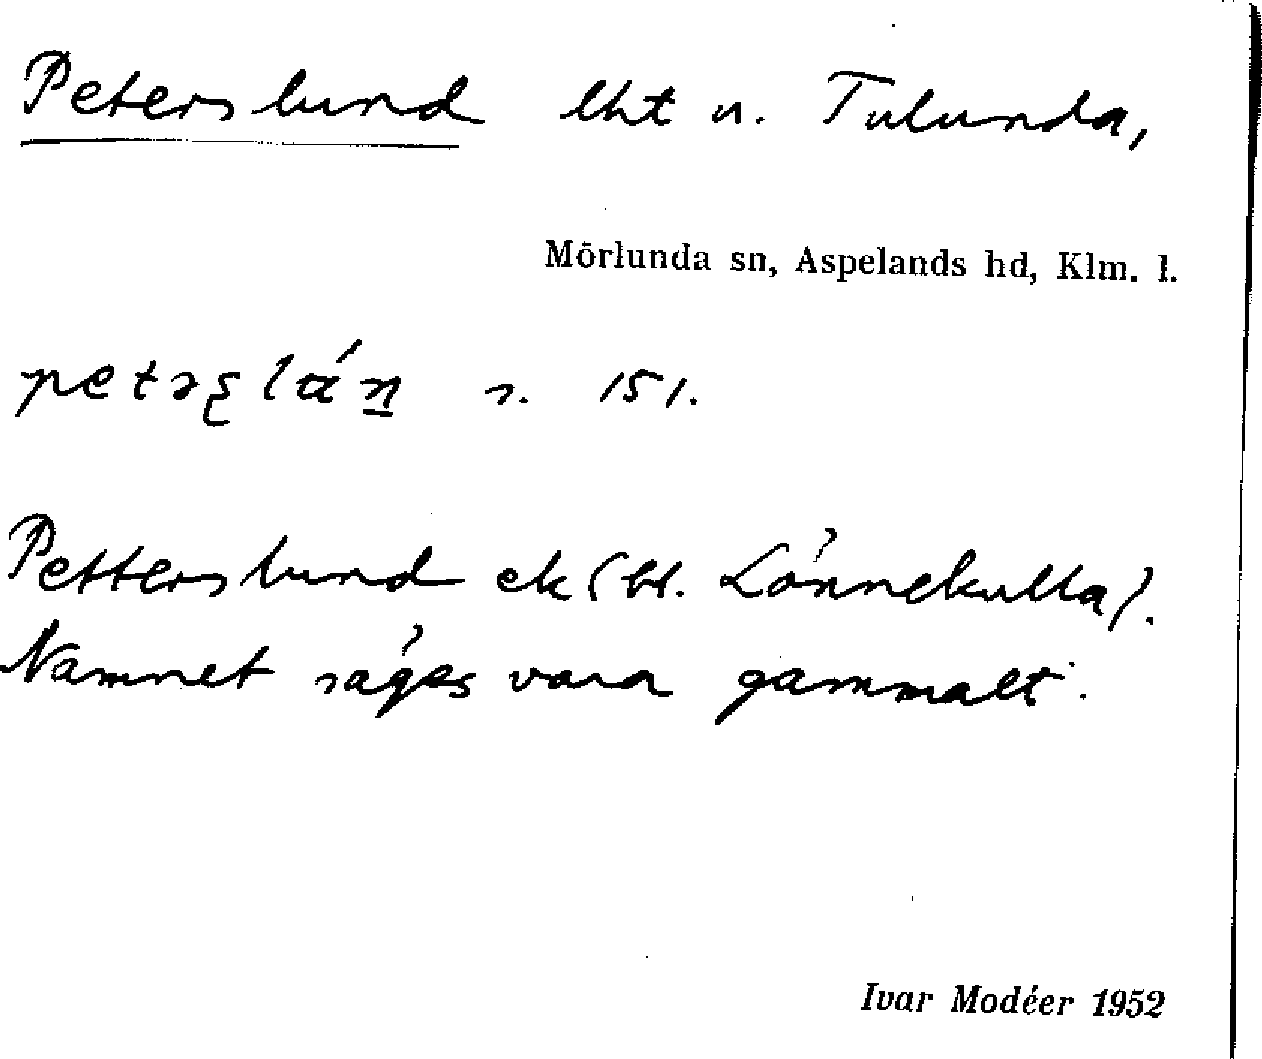 Peterslund lht u. Tulunda,
Mörlunda sn, Aspelands hd, Klm. l.
s. 151.
Petterslund ek (bl. Lönnekulla).
Namnet säges vara gammalt.
Ivar Modéer 1952